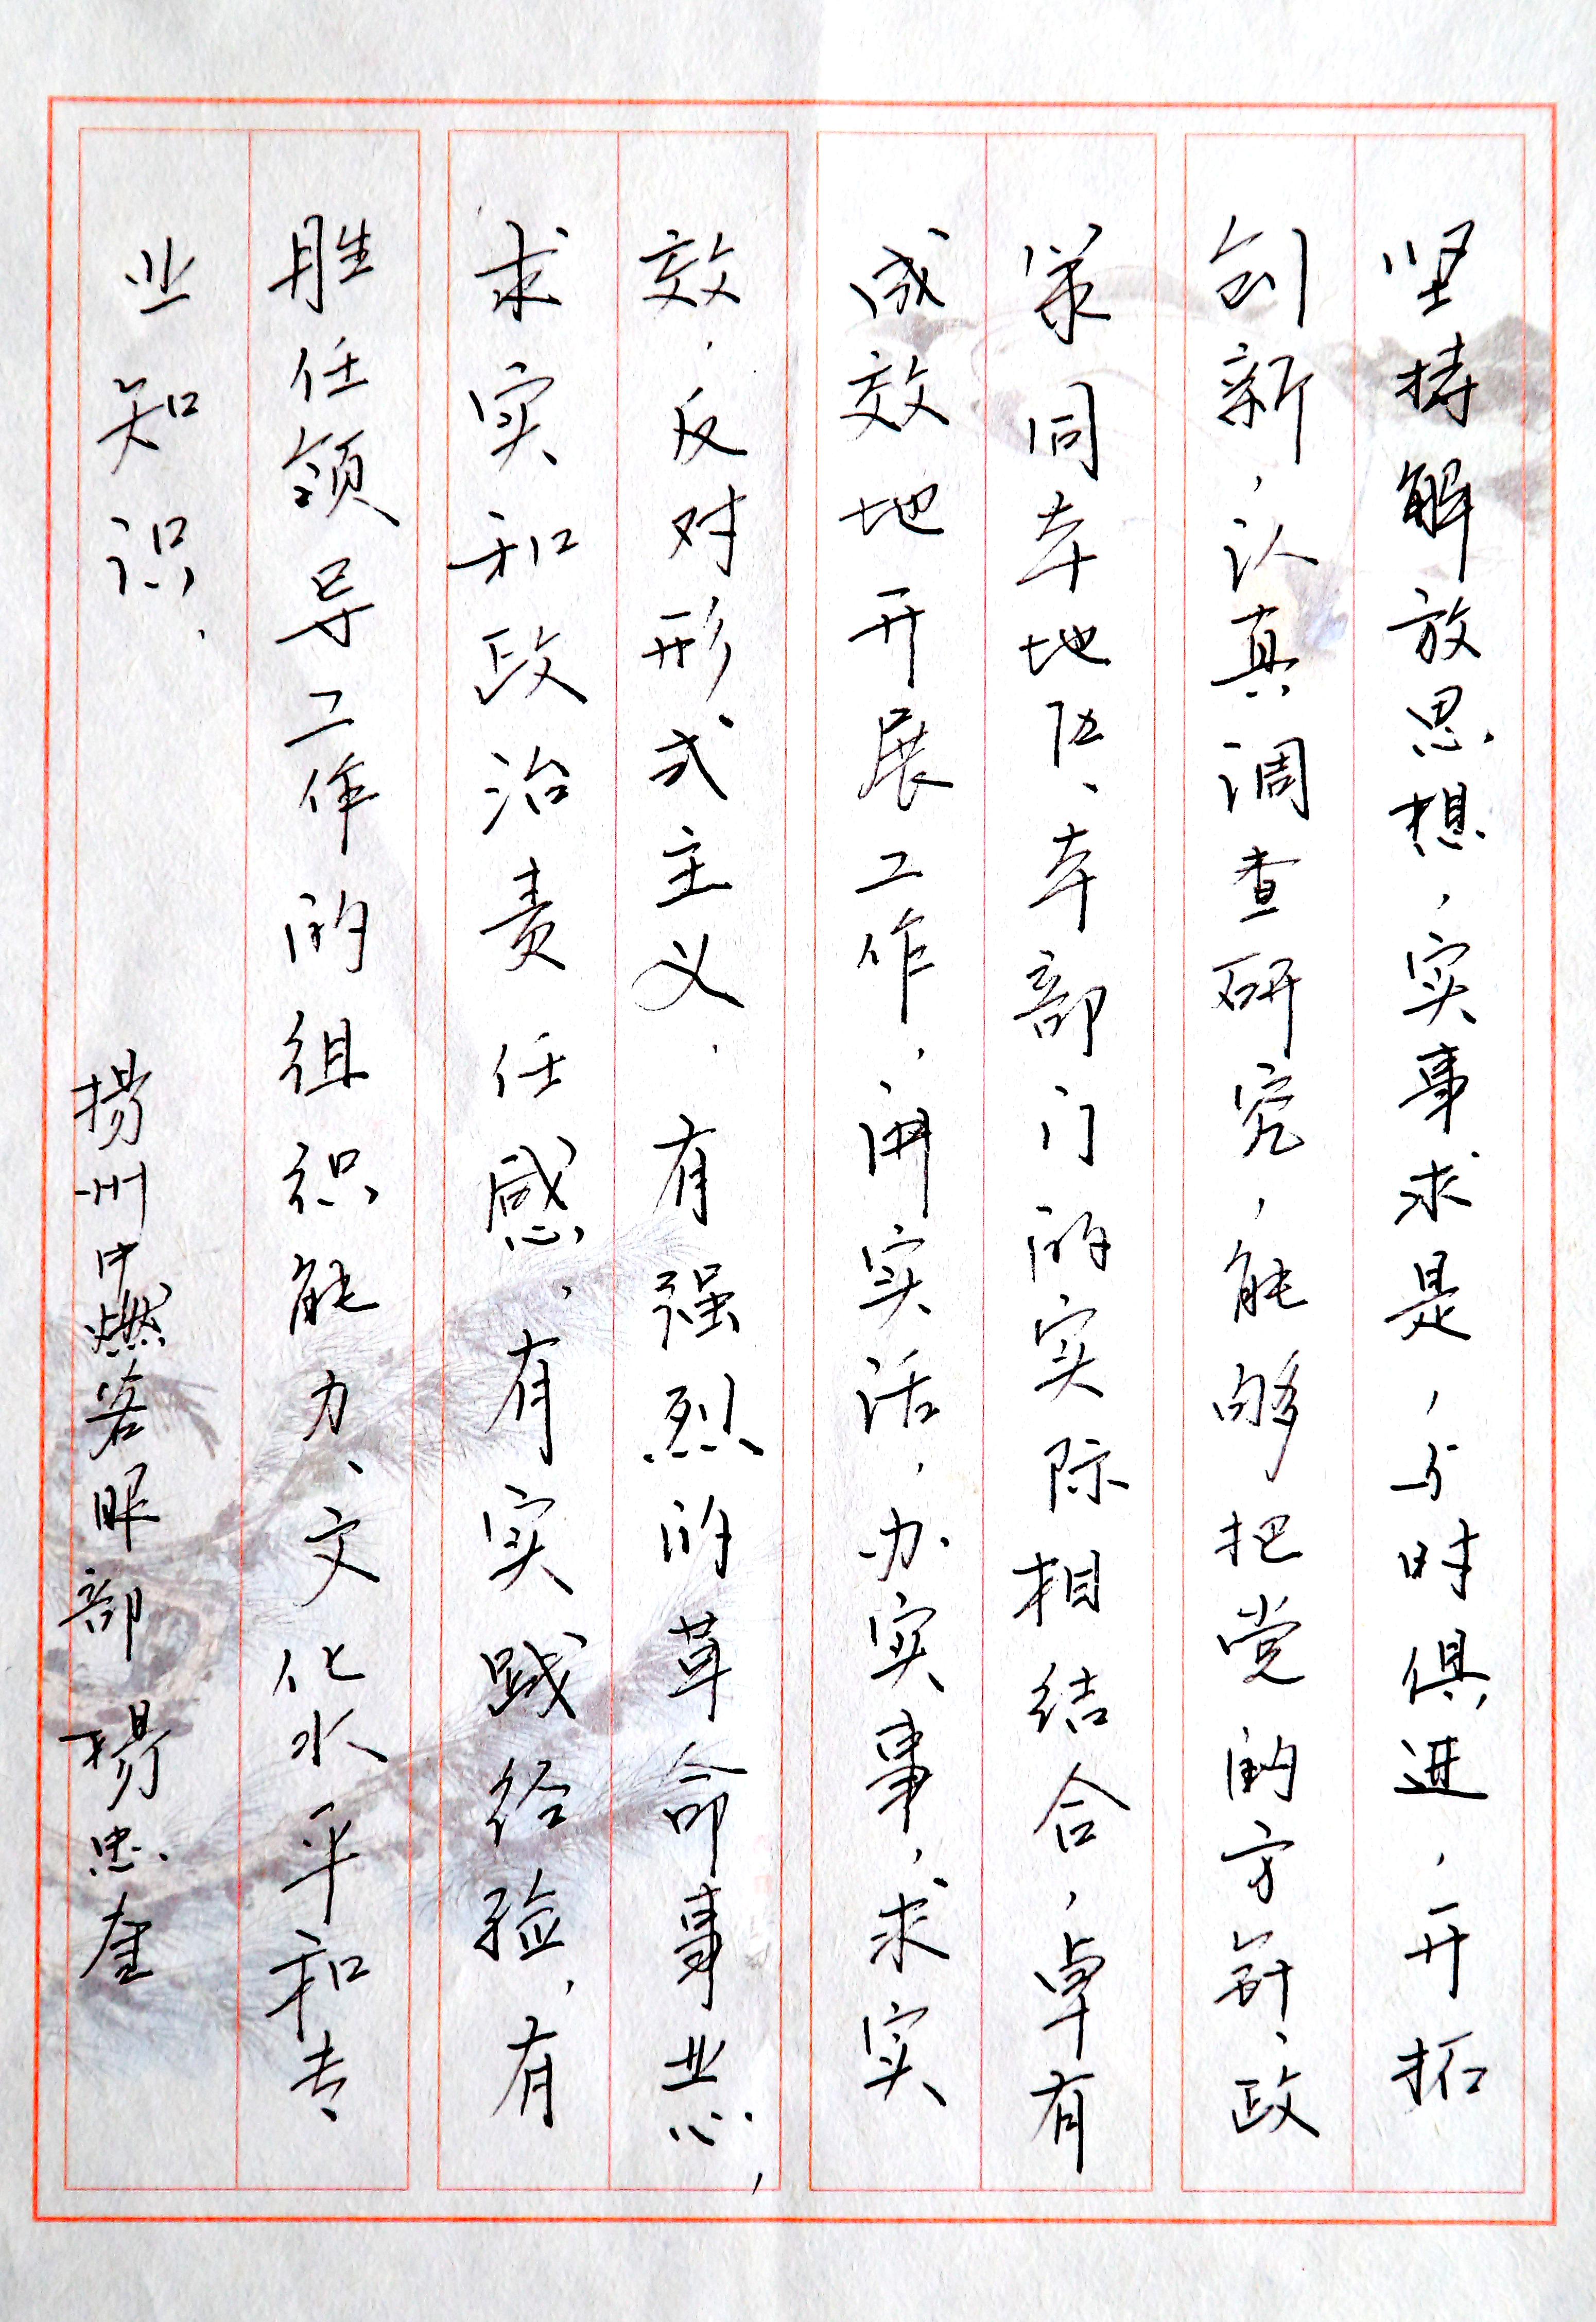 坚持解放思想，实事求是，与时俱进，开拓
创新，认真调查研究，能够把党的方针、政
策同本地区、本部门的实际相结合，卓有
成效地开展工作，讲实话，办实事，求实
效，反对形式主义。有强烈的革命事业心，
求实和政治责任感，有实践经验，有
胜任领导工作的组织能力、文化水平和专
业知识。
扬州中燃客服部 杨忠奎